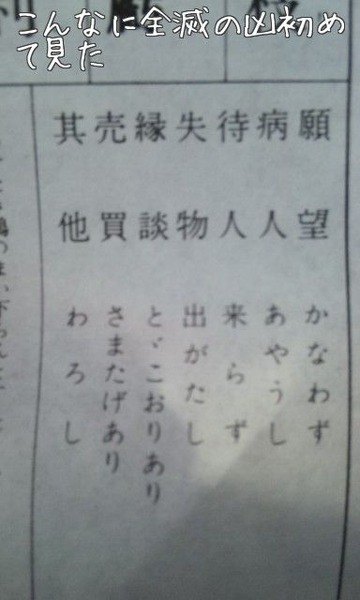 こんなに全滅の凶初め
て見た
願望 かなわず
病人 あやうし
待人 来らず
失物 出がたし
縁談 とゞこおりあり
売買 さまたげあり
其他 わろし